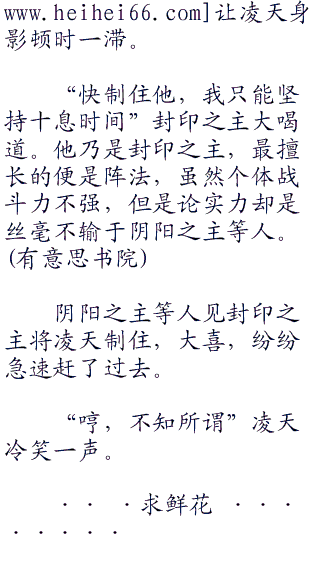 www.heihei66.com]让凌天身
影顿时一滞。
“快制住他，我只能坚
持十息时间”封印之主大喝
道。他乃是封印之主，最擅
长的便是阵法，虽然个体战
斗力不强，但是论实力却是
丝毫不输于阴阳之主等人。
(有意思书院)
阴阳之主等人见封印之
主将凌天制住，大喜，纷纷
急速赶了过去。
“哼，不知所谓”凌天
冷笑一声。
· · ·求鲜花 · · ·
· · · · ·